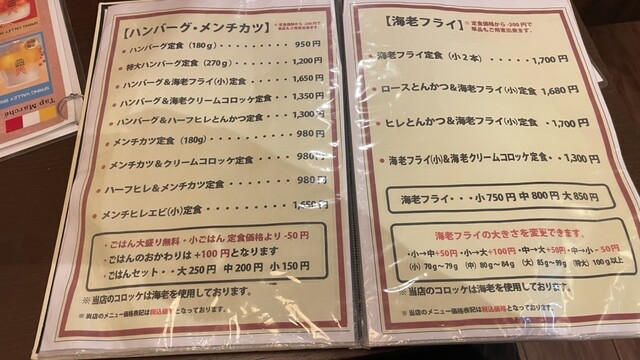 【ハンバーグ・メンチカツ】
※定食価格から -200円で
単品もご用意出来ます。
・ハンバーグ定食（180g）・・・・・・・・・950円
・特大ハンバーグ定食（270g）・・・・・・1,200円
・ハンバーグ＆海老フライ(小)定食・・・・・1,650円
・ハンバーグ＆海老クリームコロッケ定食・・1,350円
・ハンバーグ＆ハーフヒレとんかつ定食・・・1,300円
・メンチカツ定食（180g）・・・・・・・・・980円
・メンチカツ＆クリームコロッケ定食・・・・980円
・ハーフヒレ＆メンチカツ定食・・・・・・・980円
・メンチヒレエビ(小)定食・・・・・・・・1,650円
・ごはん大盛り無料・小ごはん 定食価格より -50円
・ごはんのおかわりは +100円となります
・ごはんセット・・大 250円 中 200円 小 150円
※当店のコロッケは海老を使用しております。
※当店のメニュー価格表記は税込価格となっております。
【海老フライ】
※定食価格から -200円で
単品もご用意出来ます。
海老フライ定食（小２本）・・・・・1,700円
ロースとんかつ＆海老フライ(小)定食 1,680円
・ヒレとんかつ＆海老フライ(小)定食・1,700円
・海老フライ(小)＆海老クリームコロッケ定食・・1,300円
海老フライ・・・小 750円 中 800円 大 850円
海老フライの大きさを変更できます。
・小→中+50円・小→大+100円・中→大+50円・中→小－50円
（小）70g〜79g（中）80g〜84g（大）85g〜99g（特大）100g以上
※当店のコロッケは海老を使用しております。
※当店のメニュー価格表記は税込価格となっております。
Tap Marché
SPRING VALLEY BREWERY